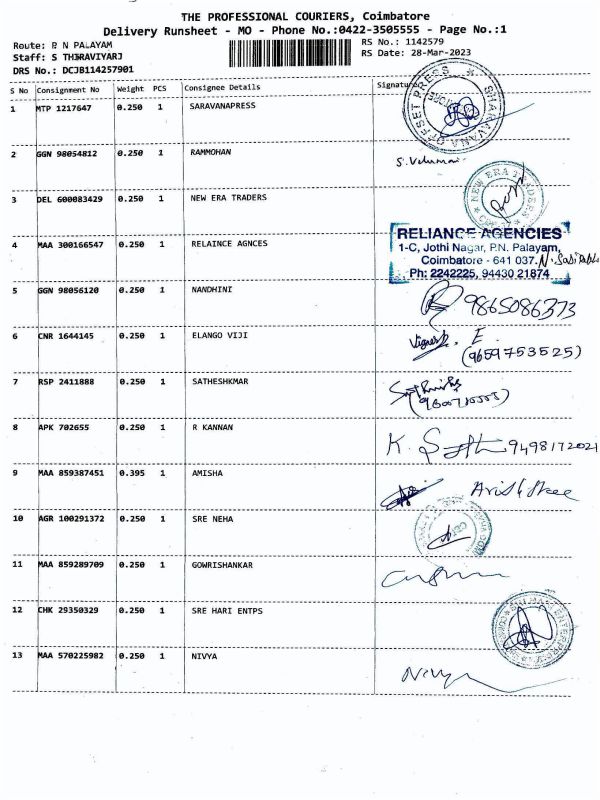 THE PROFESSIONAL COURIERS, Coimbatore
Delivery Runsheet - MO - Phone No.:0422-3505555 - Page No.:1
Route: P N PALAYAM
RS No.: 1142579
Staff: S THIRAVIYARJ
RS Date: 28-Mar-2023
DRS No.: DCJB114257901
S No Consignment No Weight PCS Consignee Details Signature
1 MTP 1217647 0.250 1 SARAVANAPRESS
2 GGN 98054812 0.250 1 RAMMOHAN
3 DEL 600083429 0.250 1 NEW ERA TRADERS
NEW ERA TRADERS
RELIANCE AGENCIES
1-C, Jothi Nagar, P.N. Palayam,
Coimbatore - 641 037.
Ph: 2242225, 94430 21874
4 MAA 300166547 0.250 1 RELAINCE AGNCES
5 GGN 98056120 0.250 1 NANDHINI 9865086373
6 CNR 1644145 0.250 1 ELANGO VIJI
(9659753525)
7 RSP 2411888 0.250 1 SATHESHKMAR
8 APK 702655 0.250 1 R KANNAN 9498172021
9 MAA 859387451 0.395 1 AMISHA
10 AGR 100291372 0.250 1 SRE NEHA
11 MAA 859289709 0.250 1 GOWRISHANKAR
12 CHK 29350329 0.250 1 SRE HARI ENTPS
13 MAA 570225982 0.250 1 NIVYA
Nivya